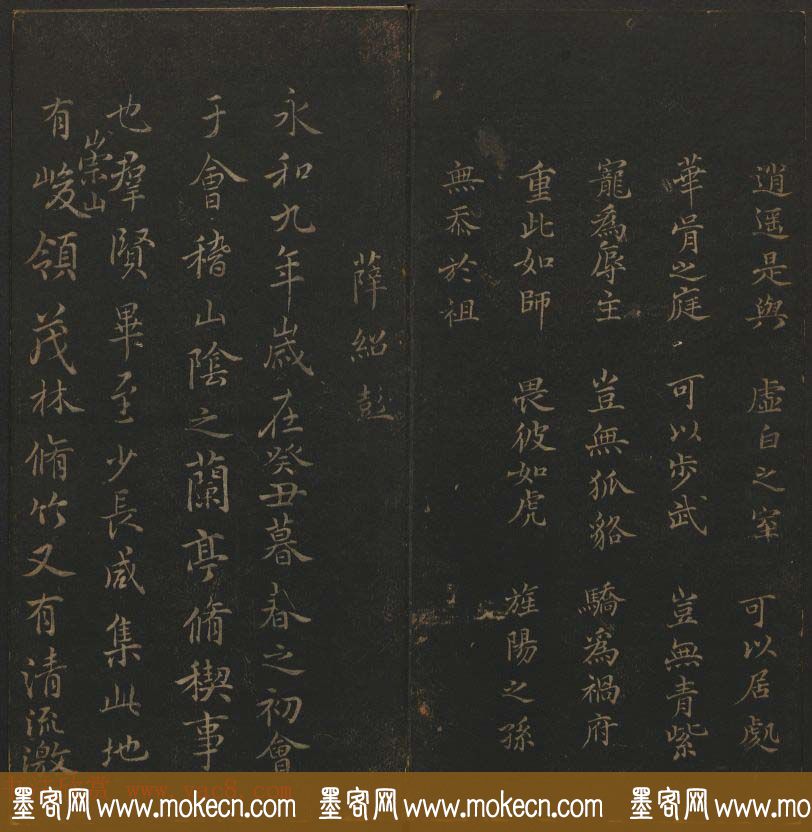 逍遥是與 虛白之室 可以居處
華胥之庭 可以步武 豈無青紫
寵為辱主 豈無狐貉 驕為禍府
重此如師 畏彼如虎 旌陽之孫
無忝於祖
薛紹彭
永和九年歲在癸丑暮春之初會
于會稽山陰之蘭亭脩稧事
也羣賢畢至少長咸集此地
有崇山峻領茂林脩竹又有清流激
www.yac8.com
墨客网 www.mokecn.com 墨客网 www.mokecn.com 墨客网 www.mokecn.com